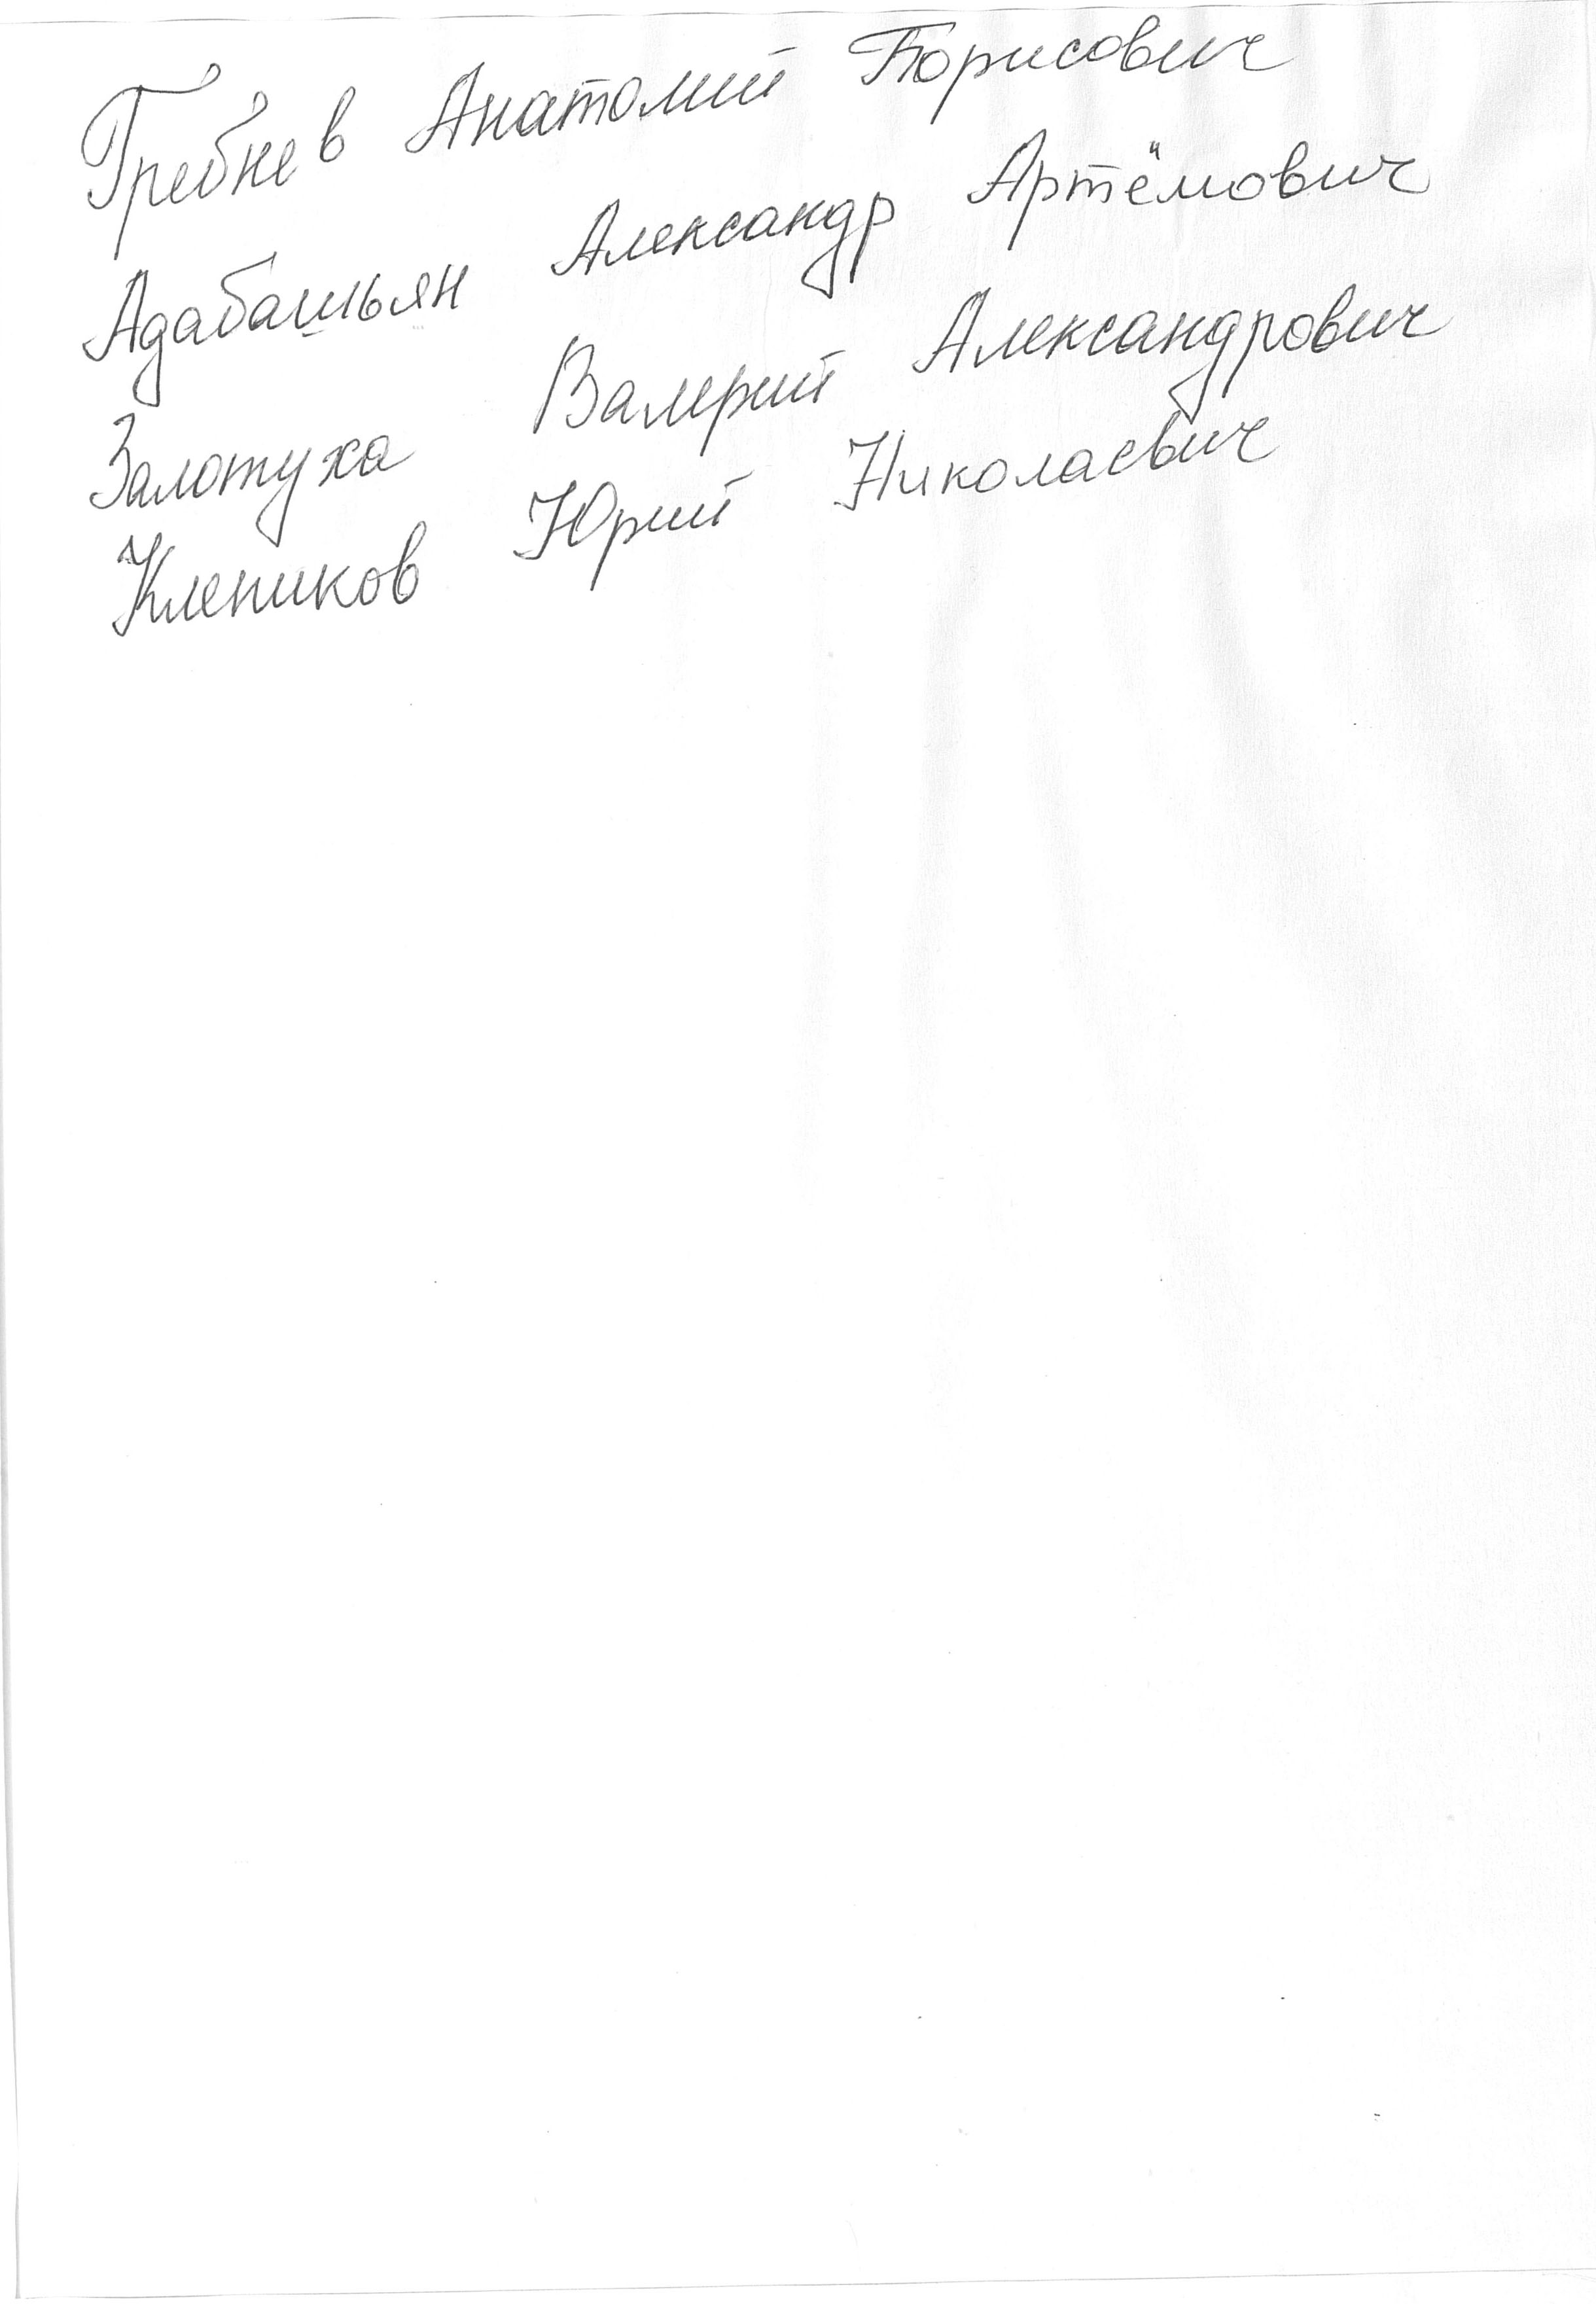 Гребнев Анатолий Борисович
Адабашьян Александр Артёмович
Залотуха Валерий Александрович
Клепиков Юрий Николаевич